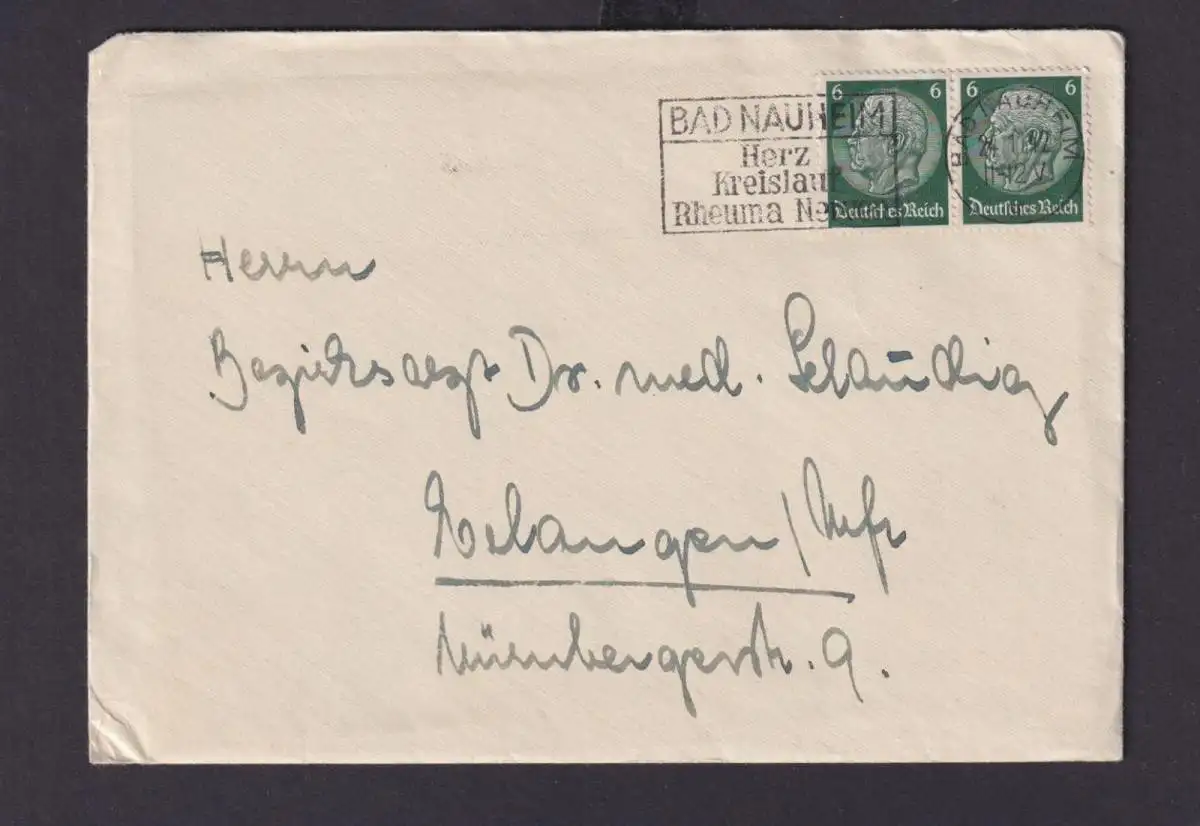 BAD NAUHEIM
Herz
Kreislauf
Rheuma Nerven
6 6
Deutsches Reich
6 6
Deutsches Reich
BAD NAUHEIM
24. 1. 42
11-12 V
Herrn
Bezirksarzt Dr. med. Schaudig
Erlangen / Mfr
Nürnbergerstr. 9.